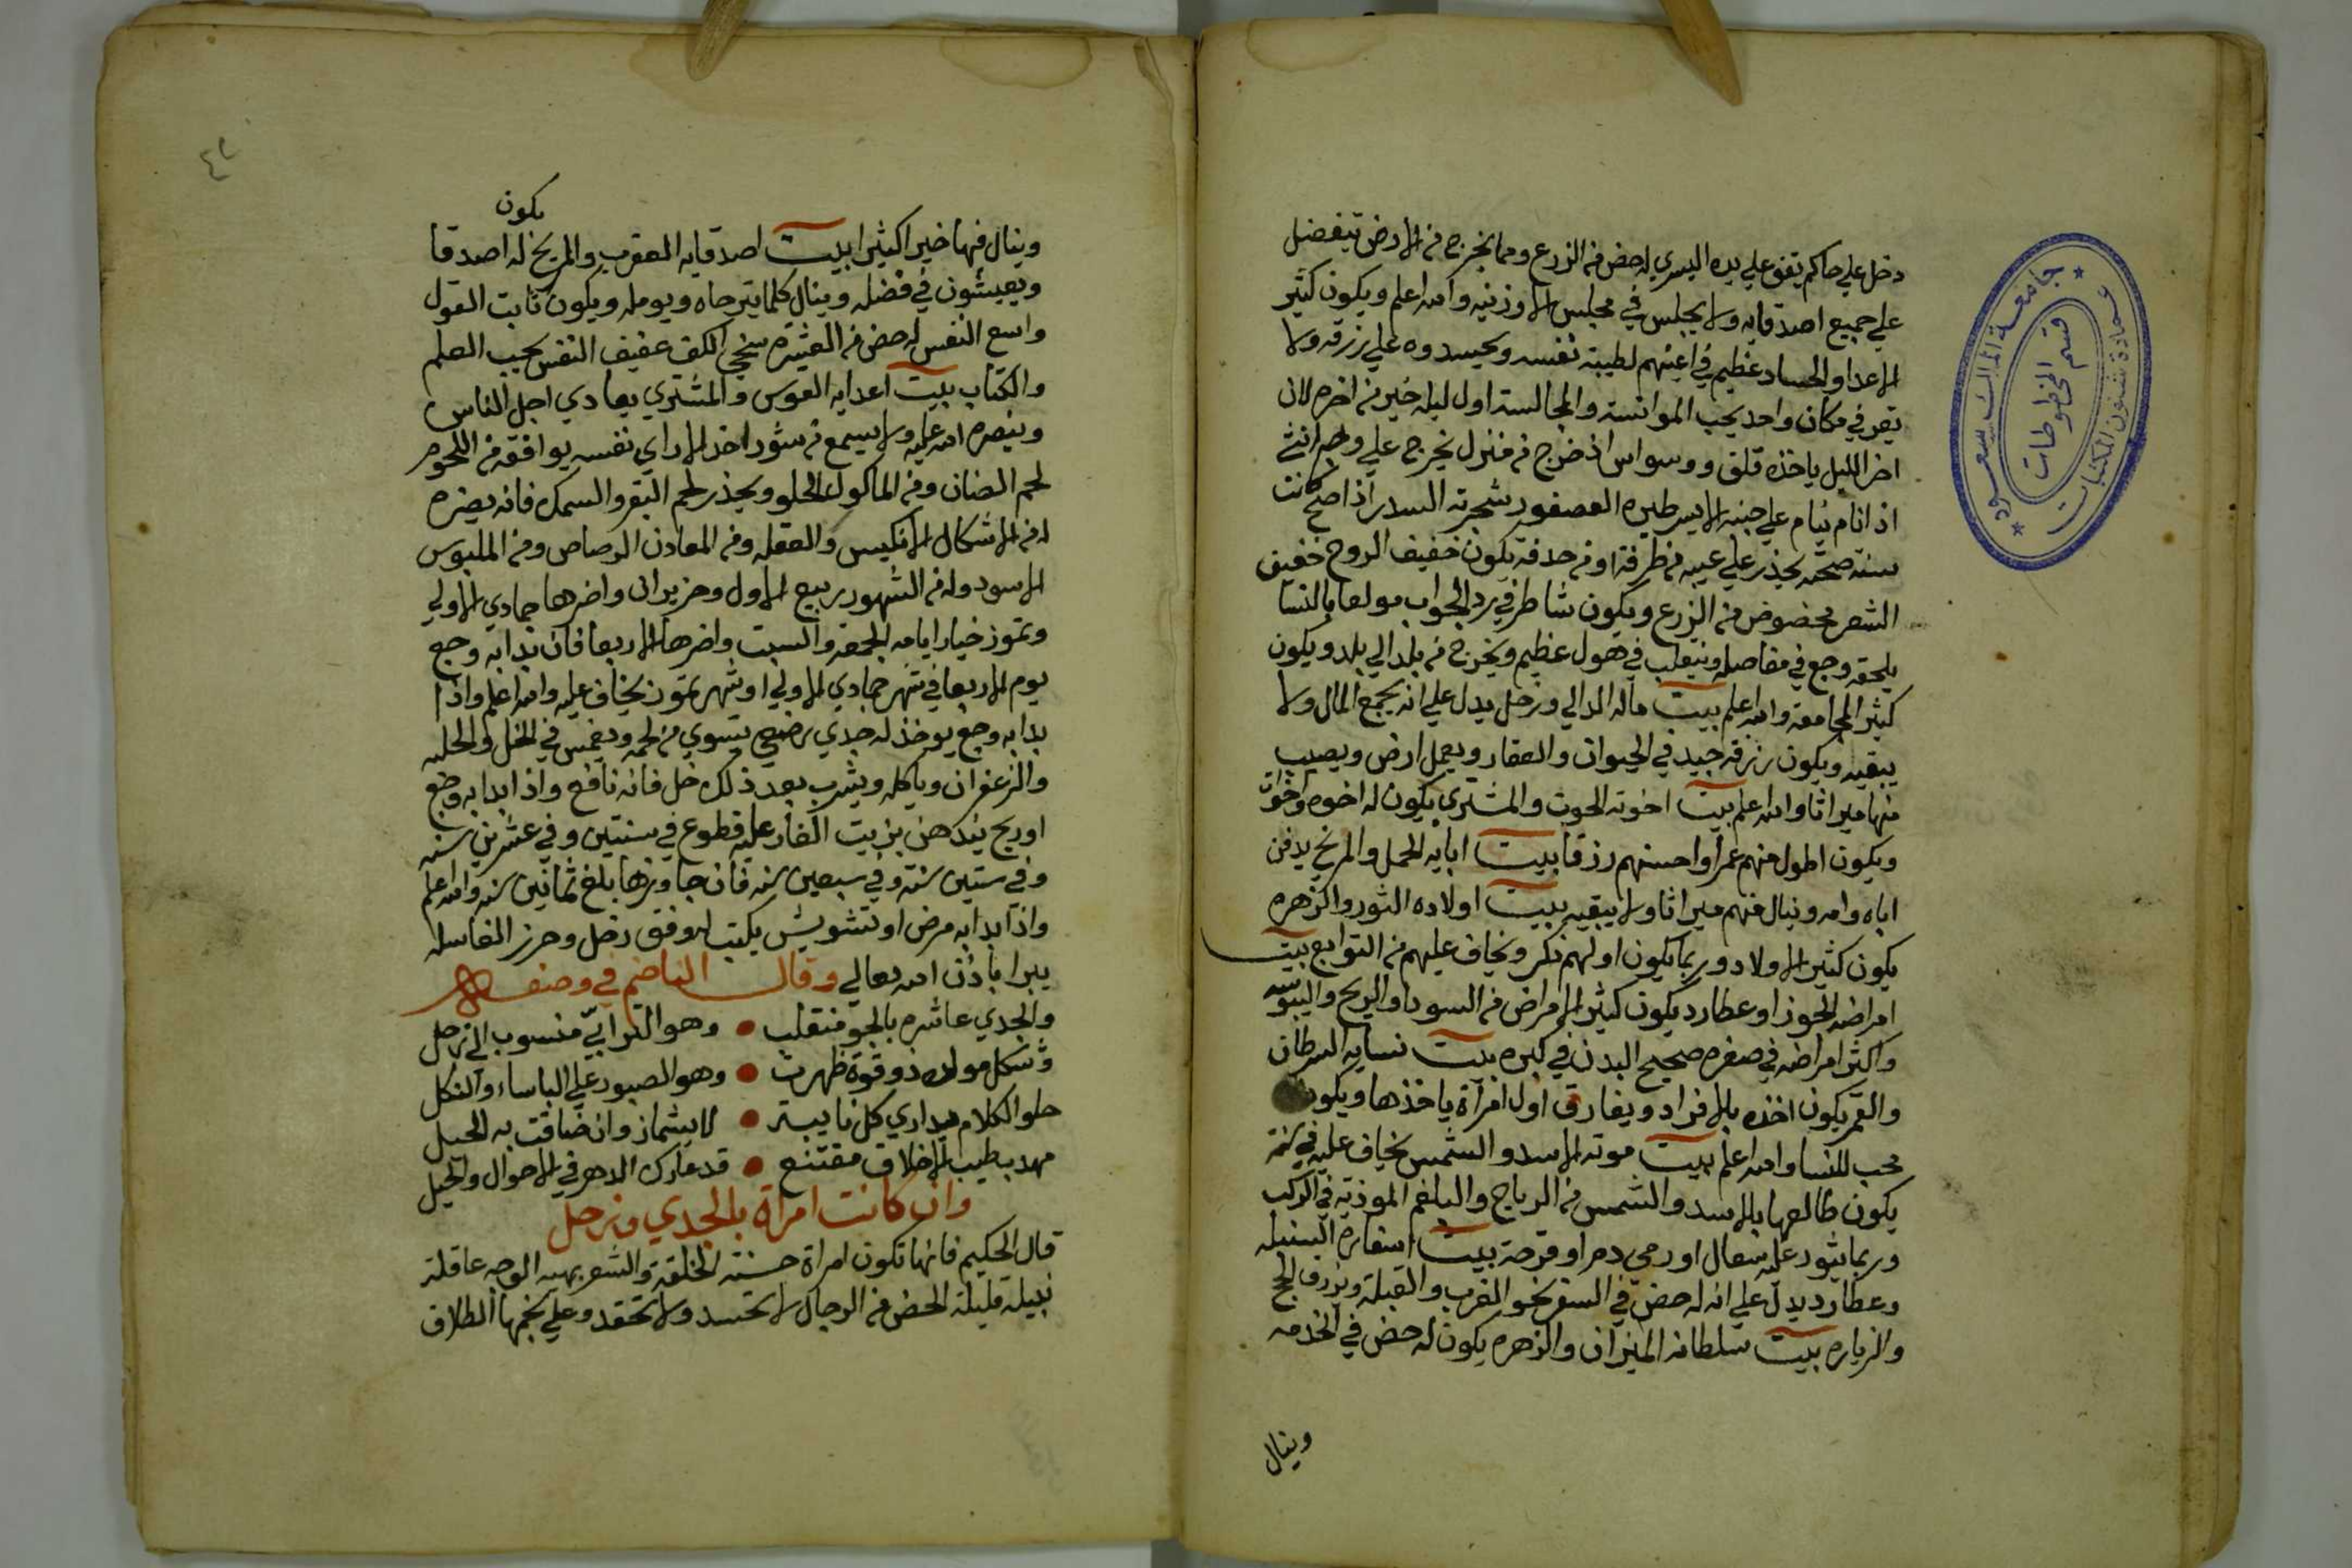 دخل علي حاكم يقف علي يده اليسري له حض من الزرع ومما يخرج من الارض يتفضل
علي جميع اصدقايه ولا يجلس في مجلس الا وزنيه والله اعلم ويكون كثير
الاعدا والحساد عظيم في اعينهم لطيبة نفسه ويحسدوه علي رزقه ولا
يقر في مكان واحد يحب الموانسة والمجالسة اول ليله خير من اخره لان
اخر الليل ياخذه قلق ووسواس اذ خرج من منزل يخرج علي وطم انثي
اذا نام ينام علي جنبه الايسر طيره العصفور شجرته السدر اذا صح كانت
سنة صحته يحذر علي عيبه من طرفة او من حدفة يكون خفيف الروح خفيف
الشعر مخصوص من الزرع ويكون شاطر في رد الجواب مولعا بالنسا
يلحقه وجع في مفاصله وينقلب في هول عظيم ويخرج من بلد الي بلد ويكون
كثير المجامعة والله اعلم بيت ماله الدالي وزحل يدل علي انه يجمع المال ولا
يبقيه ويكون رزقه جيد في الحيوان والعقار ويعمل ارض ويصيب
منها ميراثا والله اعلم بيت اخوته الحوت والمشتري يكون له اخوه واخوات
ويكون اطول منهم عمرا واحسنهم رزقا بيت ابايه الحمل والمريخ يدفن
اباه وامه وينال منهم ميراثا ولا يبقيه بيت اولاده الثور والزهره
يكون كثير الاولاد وربما يكون اولهم ذكر ويخاف عليهم من التوابع بيت
امراضه الجوزا وعطارد يكون كثير الامراض من السودا والريح واليبوسه
واكثر امراضه في صغره صحيح البدن في كبره بيت نسايه السرطان
والقمر يكون اخذه بالافراد ويفارق اول امرأة ياخذها ويكون
محب للنسا والله اعلم بيت موته الاسد والشمس يخاف عليه في سنة
يكون طالعها بالاسد والشمس من الرياح والبلغم الموذية في الركب
وربما يثور عليه سعال او رمي دم او قرحة بيت اسفاره السنبله
وعطارد يدل علي انه له حض في السفر نحو المغرب والقبلة ويرزق الحج
والزياره بيت سلطانه الميزان والزهره يكون له حض في الخدمه
وينال
جامعة الملك سعود
عمادة شئون المكتبات
قسم المخطوطات
٤٢
يكون
وينال فيها خيرا كثيرا بيت اصدقايه العقرب والمريخ له اصدقا
ويعيشون في فضله وينال كلما يترجاه ويومله ويكون ثابت القول
واسع النفس له حض من العشيرة سخي الكف عفيف النفس يحب العلم
والكتاب بيت اعدايه القوس والمشتري يعادي اجل الناس
وينصره الله عليه ولا يسمع من شور احد الا راي نفسه يوافقه من اللحوم
لحم الضان ومن الماكول الحلو ويحذر لحم البقر والسمك فانه يضره
له من الاشكال الانكيس والعقله ومن المعادن الرصاص ومن الملبوس
الاسود وله من الشهور ربيع الاول وحزيران واضرها جمادي الاولي
وتموز خيار ايامه الجمعه والسبت واضرها الاربعا فان بدا به وجع
يوم الاربعا في شهر جمادي الاولي او شهر تموز يخاف عليه والله اعلم واذا
بدا به وجع يوخذ له جدي رضيع يشوي من لحمه ويغمس في الخل والحلبه
والزعفران وياكله ويشرب بعد ذلك خل فانه نافع واذا بدا به وجع
او ريح يندهن بزيت الغار عليه قطوع في سنتين وفي عشرين سنه
وفي ستين سنة وفي سبعين سنه فان جاوزها بلغ ثمانين سنه والله اعلم
واذا بدا به مرض او تشويش يكتب له وفق زحل وحرز الغاسله
يبرا باذن الله تعالي وقال الناضم في وصفه
والجدي عاشره بالجو منقلب • وهو الترابيّ منسوب الي زحل
وشكل مولده ذو قوة ظهرت • وهو الصبور علي الباساء والنكل
حلو الكلام يداري كل نايبة • لا يشماز وان ضاقت به الحيل
مهدب طيب الاخلاق مقتنع • قد عارك الدهر في الاحوال والحيل
وان كانت امراة بالجدي وزحل
قال الحكيم فانها تكون امراة حسنة الخلقة والشعر بهية الوجه عاقلة
نبيلة قليلة الحض من الرجال لا تحسد ولا تحقد وعلي نجمها الطلاق